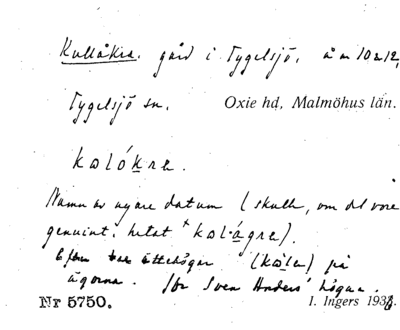 Kullåkra. gård i Tygelsjö, å m 10 a 12,
Tygelsjö sn. Oxie hd, Malmöhus län.
kɷlókra.
Namn av nyare datum (skulle, om det vore
genuint, hetat *kɷl·ágra).
Efter ättehögar (kɷla) på
ägorna. Jfr Sven Anders' högar.
Nr 5750. I. Ingers 193